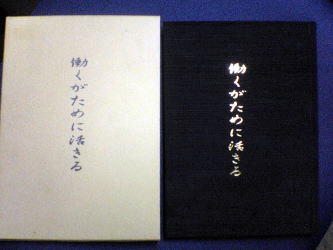 働くがために活きる
働くがために活きる